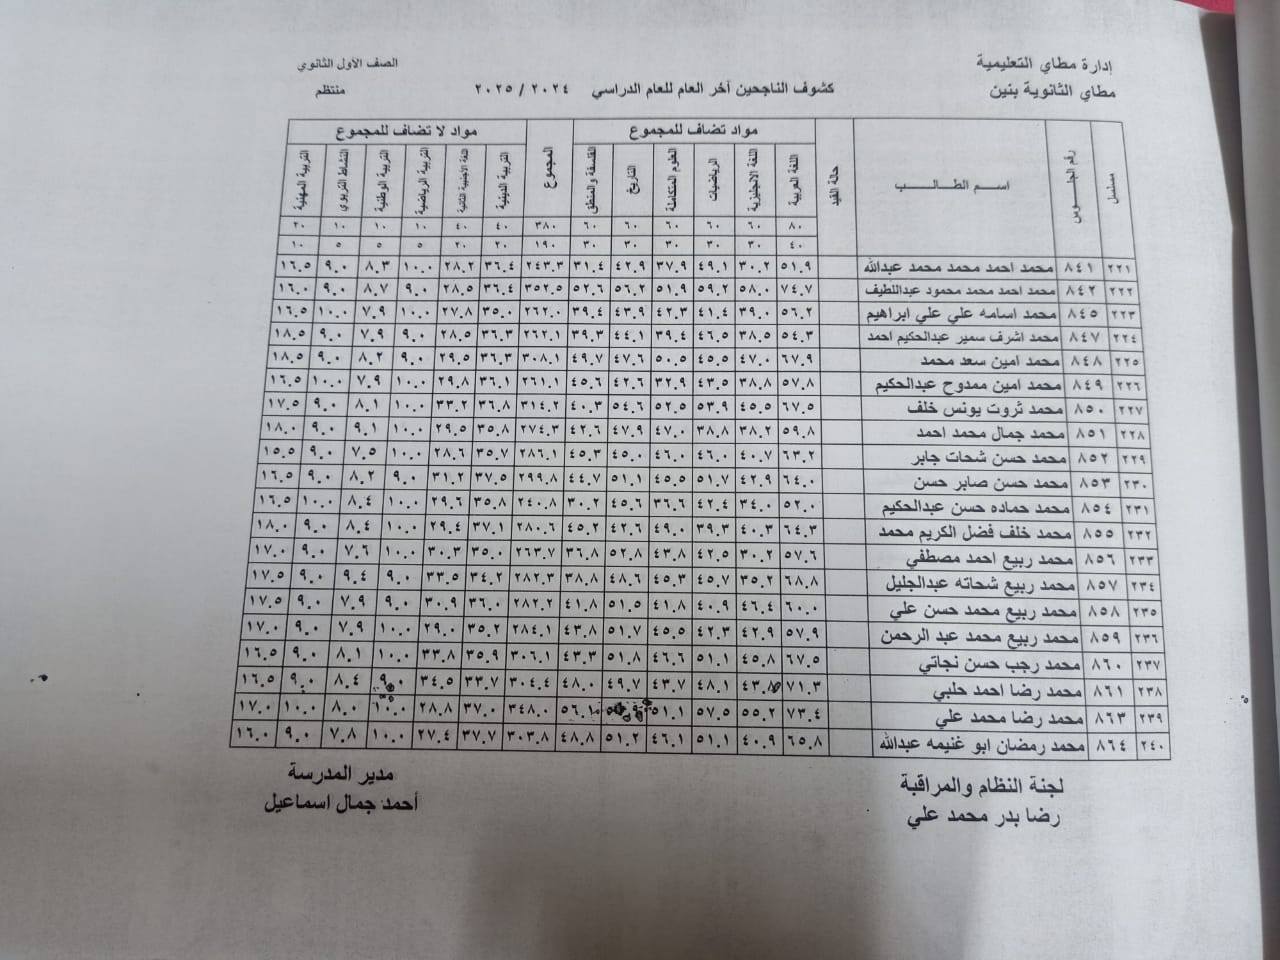 إدارة مطاي التعليمية
مطاي الثانوية بنين
كشوف الناجحين آخر العام للعام الدراسي ٢٠٢٤ / ٢٠٢٥
الصف الأول الثانوي
منتظم
مسلسل رقم الجلوس اسم الطالب حالة القيد مواد تضاف للمجموع المجموع مواد لا تضاف للمجموع
اللغة العربية اللغة الانجليزية الرياضيات العلوم المتكاملة التاريخ الفلسفة والمنطق التربية الدينية اللغة الاجنبية الثانية التربية الرياضية التربية الوطنية النشاط التربوي التربية المهنية
٨٠ ٦٠ ٦٠ ٦٠ ٦٠ ٦٠ ٣٨٠ ٤٠ ٤٠ ١٠ ١٠ ١٠ ٢٠
٤٠ ٣٠ ٣٠ ٣٠ ٣٠ ٣٠ ١٩٠ ٢٠ ٢٠ ٥ ٥ ٥ ١٠
٢٢١ ٨٤١ محمد احمد محمد محمد عبدالله ٥١.٩ ٣٠.٢ ٤٩.١ ٣٧.٩ ٤٢.٩ ٣١.٤ ٢٤٣.٣ ٣٦.٤ ٢٨.٢ ١٠.٠ ٨.٣ ٩.٠ ١٦.٥
٢٢٢ ٨٤٢ محمد احمد محمد محمود عبداللطيف ٧٤.٧ ٥٨.٠ ٥٩.٢ ٥١.٩ ٥٦.٢ ٥٢.٦ ٣٥٢.٥ ٣٦.٤ ٢٨.٥ ٩.٠ ٨.٧ ٩.٠ ١٦.٠
٢٢٣ ٨٤٥ محمد اسامه علي علي ابراهيم ٥٦.٢ ٣٩.٠ ٤١.٤ ٤٢.٣ ٤٣.٩ ٣٩.٤ ٢٦٢.٠ ٣٥.٠ ٢٧.٨ ١٠.٠ ٧.٩ ١٠.٠ ١٦.٥
٢٢٤ ٨٤٧ محمد اشرف سمير عبدالحكيم احمد ٥٤.٣ ٣٨.٥ ٤٦.٥ ٣٩.٤ ٤٤.١ ٣٩.٣ ٢٦٢.١ ٣٦.٣ ٢٨.٥ ٩.٠ ٧.٩ ٩.٠ ١٨.٥
٢٢٥ ٨٤٨ محمد امين سعد محمد ٦٧.٩ ٤٧.٠ ٤٥.٥ ٥٠.٥ ٤٧.٦ ٤٩.٧ ٣٠٨.١ ٣٦.٣ ٢٩.٥ ٩.٠ ٨.٢ ٩.٠ ١٨.٥
٢٢٦ ٨٤٩ محمد امين ممدوح عبدالحكيم ٥٧.٨ ٣٨.٨ ٤٣.٥ ٣٢.٩ ٤٢.٦ ٤٥.٦ ٢٦١.١ ٣٦.١ ٢٩.٨ ١٠.٠ ٧.٩ ١٠.٠ ١٦.٥
٢٢٧ ٨٥٠ محمد ثروت يونس خلف ٦٧.٥ ٤٥.٥ ٥٣.٩ ٥٢.٥ ٥٤.٦ ٤٠.٣ ٣١٤.٢ ٣٦.٨ ٣٣.٢ ١٠.٠ ٨.١ ٩.٠ ١٧.٥
٢٢٨ ٨٥١ محمد جمال محمد احمد ٥٩.٨ ٣٨.٢ ٣٨.٨ ٤٧.٠ ٤٧.٩ ٤٢.٦ ٢٧٤.٣ ٣٥.٨ ٢٩.٥ ١٠.٠ ٩.١ ٩.٠ ١٨.٠
٢٢٩ ٨٥٢ محمد حسن شحات جابر ٦٣.٢ ٤٠.٧ ٤٦.٠ ٤٦.٠ ٤٥.٠ ٤٥.٣ ٢٨٦.١ ٣٥.٧ ٢٨.٦ ١٠.٠ ٧.٥ ٩.٠ ١٥.٥
٢٣٠ ٨٥٣ محمد حسن صابر حسن ٦٤.٠ ٤٢.٩ ٥١.٧ ٤٥.٥ ٥١.١ ٤٤.٧ ٢٩٩.٨ ٣٧.٥ ٣١.٢ ٩.٠ ٨.٢ ٩.٠ ١٦.٥
٢٣١ ٨٥٤ محمد حماده حسن عبدالحكيم ٥٢.٠ ٣٤.٠ ٤٢.٤ ٣٦.٦ ٤٥.٦ ٣٠.٢ ٢٤٠.٨ ٣٥.٨ ٢٩.٦ ١٠.٠ ٨.٤ ١٠.٠ ١٦.٥
٢٣٢ ٨٥٥ محمد خلف فضل الكريم محمد ٦٤.٣ ٤٠.٣ ٣٩.٣ ٤٩.٠ ٤٢.٦ ٤٥.٢ ٢٨٠.٦ ٣٧.١ ٢٩.٤ ١٠.٠ ٨.٤ ٩.٠ ١٨.٠
٢٣٣ ٨٥٦ محمد ربيع احمد مصطفي ٥٧.٦ ٣٠.٢ ٤٢.٥ ٤٣.٨ ٥٢.٨ ٣٦.٨ ٢٦٣.٧ ٣٥.٠ ٣٠.٣ ١٠.٠ ٧.٦ ٩.٠ ١٧.٠
٢٣٤ ٨٥٧ محمد ربيع شحاته عبدالجليل ٦٨.٨ ٣٥.٢ ٤٥.٧ ٤٥.٣ ٤٨.٦ ٣٨.٨ ٢٨٢.٣ ٣٤.٢ ٣٣.٥ ٩.٠ ٩.٤ ٩.٠ ١٧.٥
٢٣٥ ٨٥٨ محمد ربيع محمد حسن علي ٦٠.٠ ٤٦.٤ ٤٠.٩ ٤١.٨ ٥١.٥ ٤١.٨ ٢٨٢.٢ ٣٦.٠ ٣٠.٩ ٩.٠ ٧.٩ ٩.٠ ١٧.٥
٢٣٦ ٨٥٩ محمد ربيع محمد عبد الرحمن ٥٧.٩ ٤٢.٩ ٤٢.٣ ٤٥.٥ ٥١.٧ ٤٣.٨ ٢٨٤.١ ٣٥.٢ ٢٩.٠ ١٠.٠ ٧.٩ ٩.٠ ١٧.٠
٢٣٧ ٨٦٠ محمد رجب حسن نجاتي ٦٧.٥ ٤٥.٨ ٥١.١ ٤٦.٦ ٥١.٨ ٤٣.٣ ٣٠٦.١ ٣٥.٩ ٣٣.٨ ١٠.٠ ٨.١ ٩.٠ ١٦.٥
٢٣٨ ٨٦١ محمد رضا احمد حلبي ٧١.٣ ٤٣.٨ ٤٨.١ ٤٣.٧ ٤٩.٧ ٤٨.٠ ٣٠٤.٤ ٣٣.٧ ٣٤.٥ ٩.٠ ٨.٤ ٩.٠ ١٦.٥
٢٣٩ ٨٦٣ محمد رضا محمد علي ٧٣.٤ ٥٥.٢ ٥٧.٥ ٥١.١ ٥٦.١ ٣٤٨.٠ ٣٧.٠ ٢٨.٨ ١٠.٠ ٨.٠ ١٠.٠ ١٧.٠
٢٤٠ ٨٦٤ محمد رمضان ابو غنيمه عبدالله ٦٥.٨ ٤٠.٩ ٥١.١ ٤٦.١ ٥١.٢ ٤٨.٨ ٣٠٣.٨ ٣٧.٧ ٢٧.٤ ١٠.٠ ٧.٨ ٩.٠ ١٦.٠
لجنة النظام والمراقبة
رضا بدر محمد علي
مدير المدرسة
أحمد جمال اسماعيل